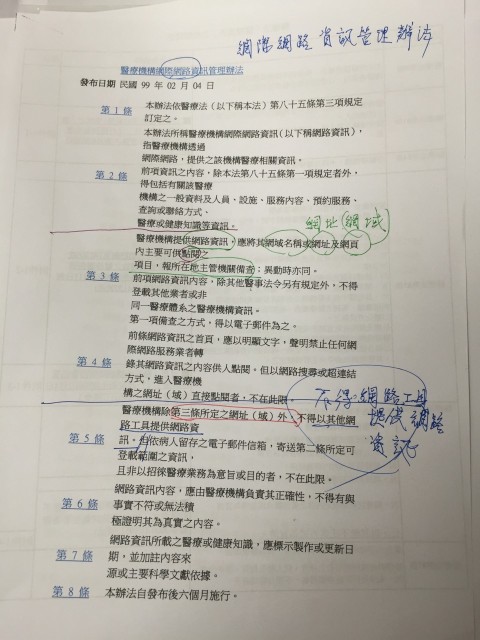 網際網路資訊管理辦法
醫療機構網際網路資訊管理辦法
發布日期 民國 99 年 02 月 04 日
第 1 條 本辦法依醫療法（以下稱本法）第八十五條第三項規定
訂定之。
本辦法所稱醫療機構網際網路資訊（以下稱網路資訊），
指醫療機構透過
網際網路，提供之該機構醫療相關資訊。
第 2 條 前項資訊之內容，除本法第八十五條第一項規定者外，
得包括有關該醫療
機構之一般資料及人員、設施、服務內容、預約服務、
查詢或聯絡方式、
醫療或健康知識等資訊。
網址(網域)
醫療機構提供網路資訊，應將其網域名稱或網址及網頁
內主要可供點閱之
項目，報所在地主管機關備查；異動時亦同。
第 3 條 前項網路資訊內容，除其他醫事法令另有規定外，不得
登載其他業者或非
同一醫療體系之醫療機構資訊。
第一項備查之方式，得以電子郵件為之。
前條網路資訊之首頁，應以明顯文字，聲明禁止任何網
際網路服務業者轉
第 4 條 錄其網路資訊之內容供人點閱。但以網路搜尋或超連結
方式，進入醫療機
構之網址（域）直接點閱者，不在此限。
不得網路工具
提供網路
資訊
醫療機構除第三條所定之網址（域）外，不得以其他網
路工具提供網路資
第 5 條 訊。但依病人留存之電子郵件信箱，寄送第二條所定可
登載範圍之資訊，
且非以招徠醫療業務為意旨或目的者，不在此限。
網路資訊內容，應由醫療機構負責其正確性，不得有與
第 6 條 事實不符或無法積
極證明其為真實之內容。
網路資訊所載之醫療或健康知識，應標示製作或更新日
第 7 條 期，並加註內容來
源或主要科學文獻依據。
第 8 條 本辦法自發布後六個月施行。